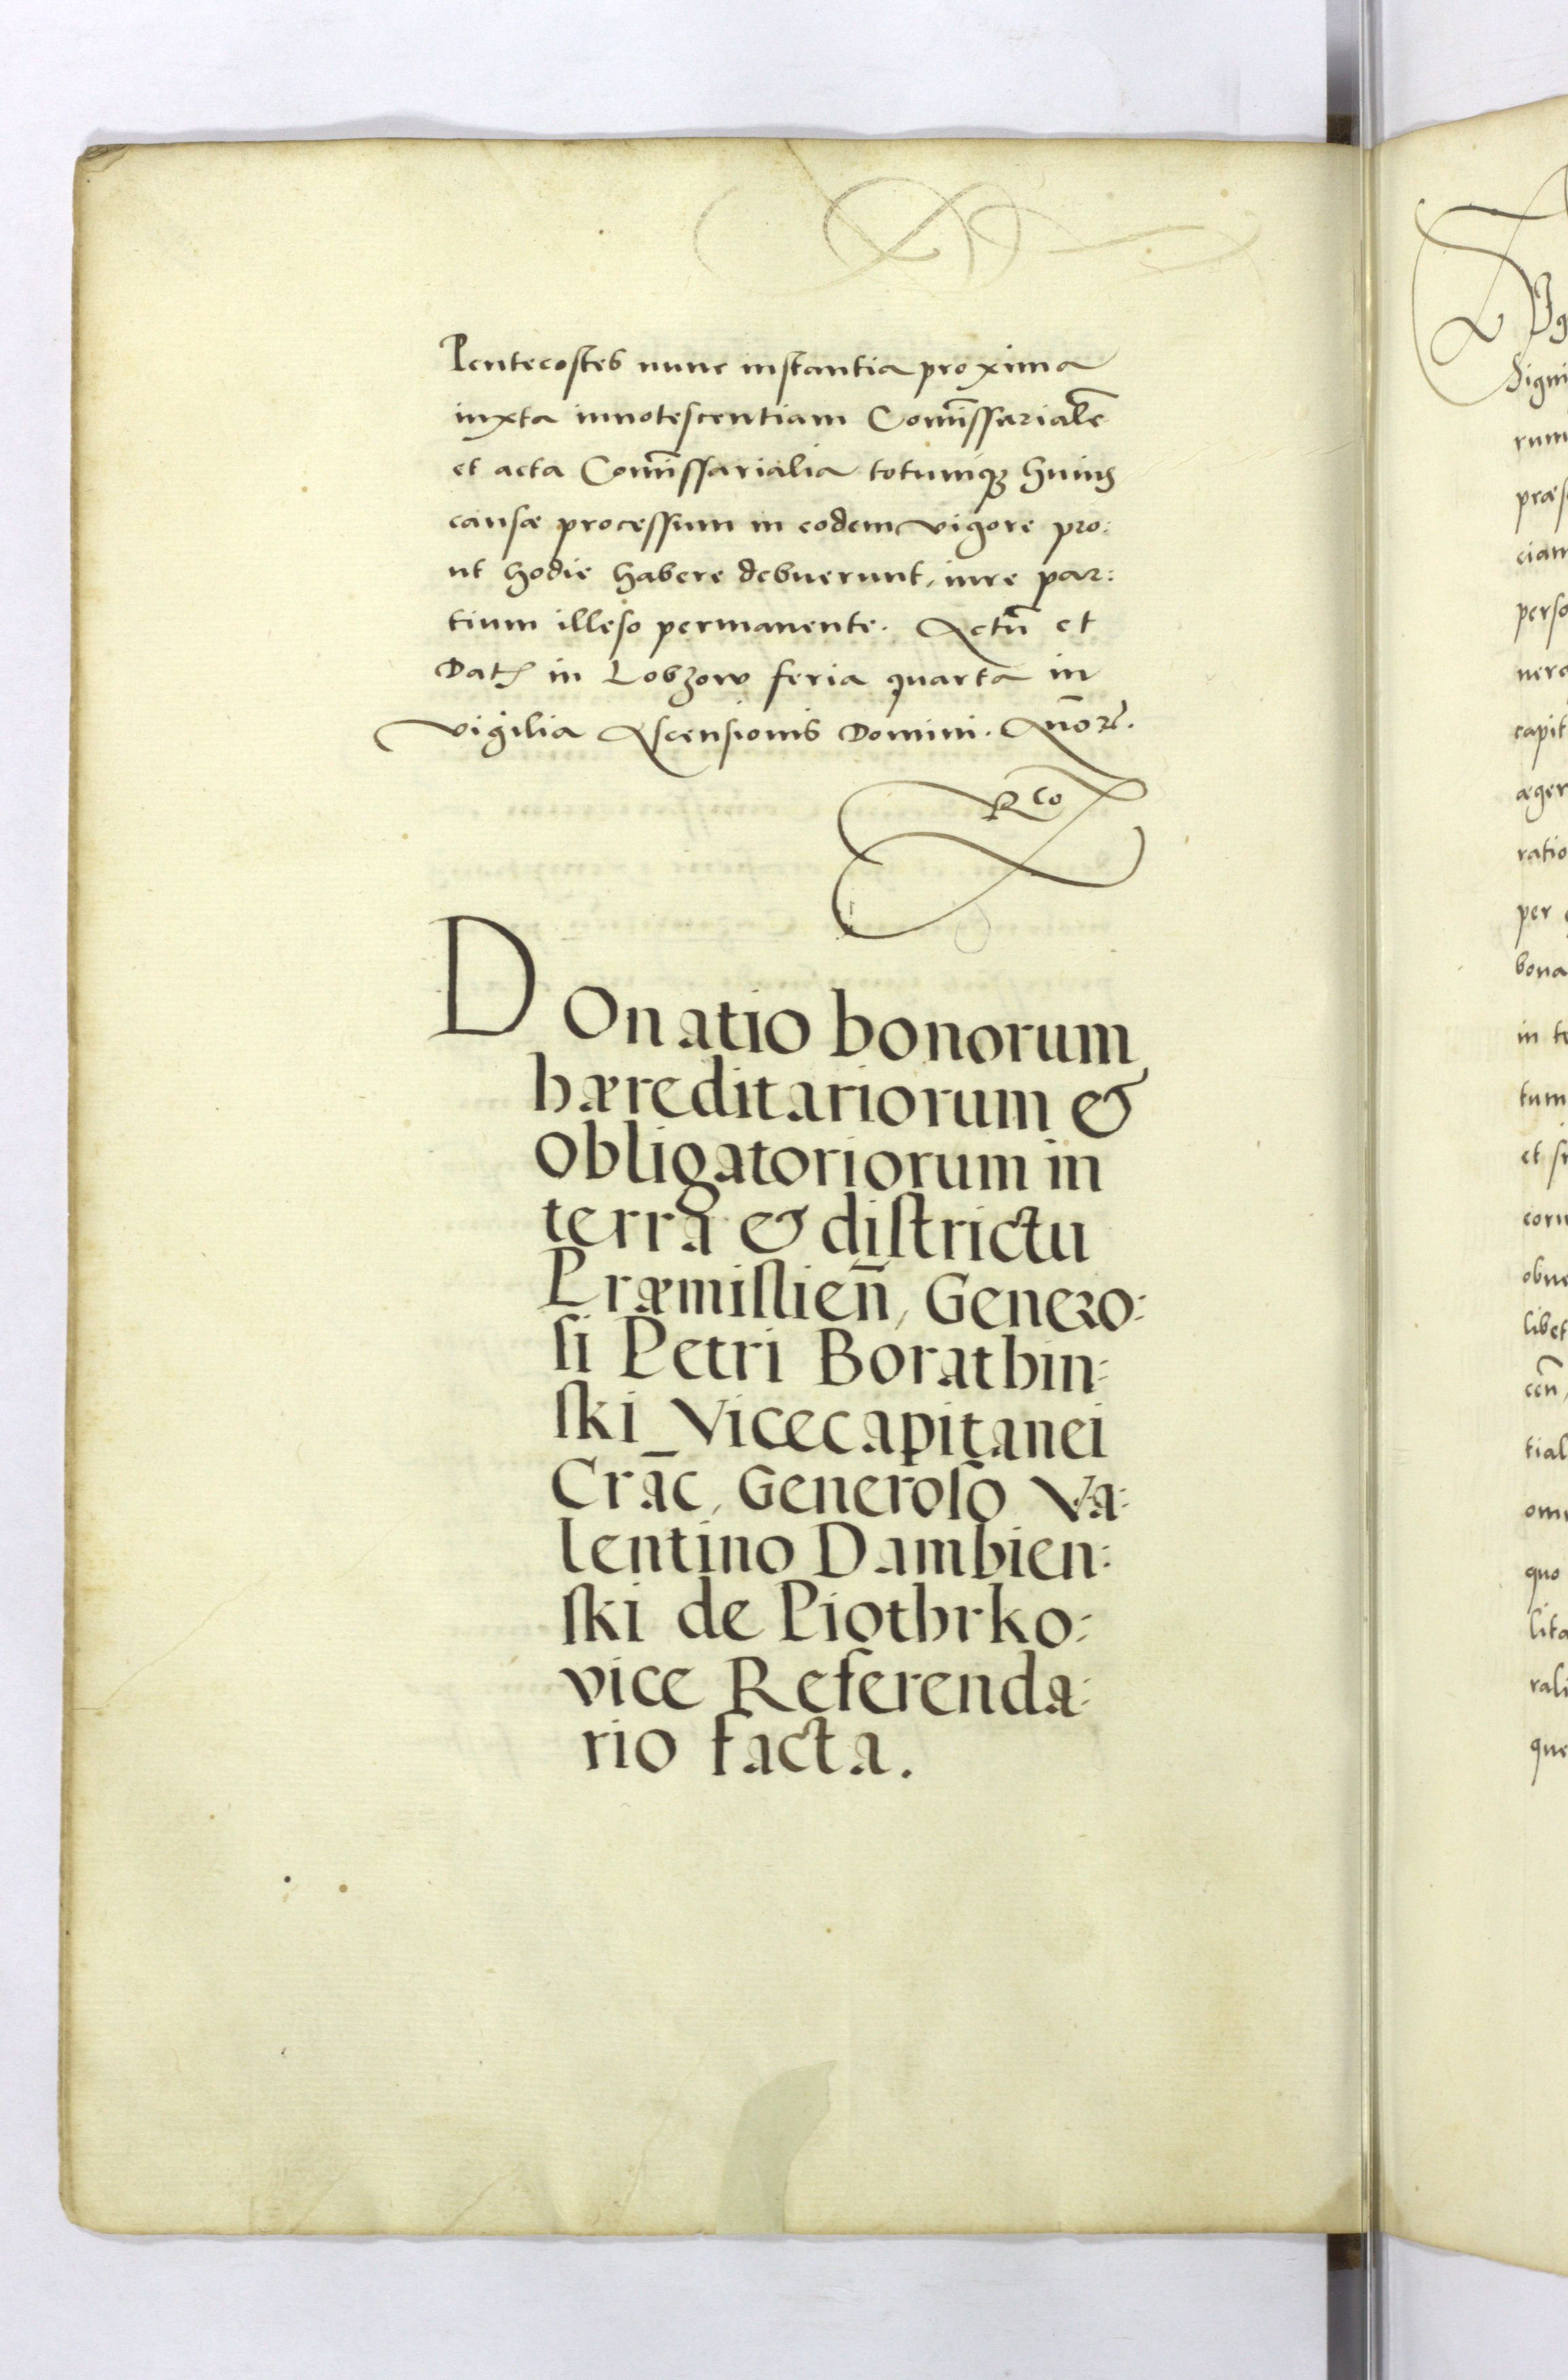 Pentecostes nunc instantia proxima
iuxta innotescentiam Com̃issarialẽ
et acta Com̃issarialia totumqꝫ huius
causæ processum in eodem vigore pro:
ut hodie habere debuerunt, iure par:
tium illeso permanente. Actũ et
Dat in Lobzow feria quarta in
vigilia Ascensionis Domini. Añо
DOnatio bonorum
hæreditariorum &
obligatoriorum in
terra & districtu
Præmislieñ, Genero:
si Petri Borathin:
ski Vicecapitanei
Crac̃, Generoso Va:
lentino Dambien:
ski de Piothrko:
vice Referenda:
rio facta.
digni
rum
præs
ciam
perso
nero
capit
æger
ratio
per
bona
in te
tum
et si
coru
obue
libet
ceñ,
tial
omn
quo
lita
rali
que